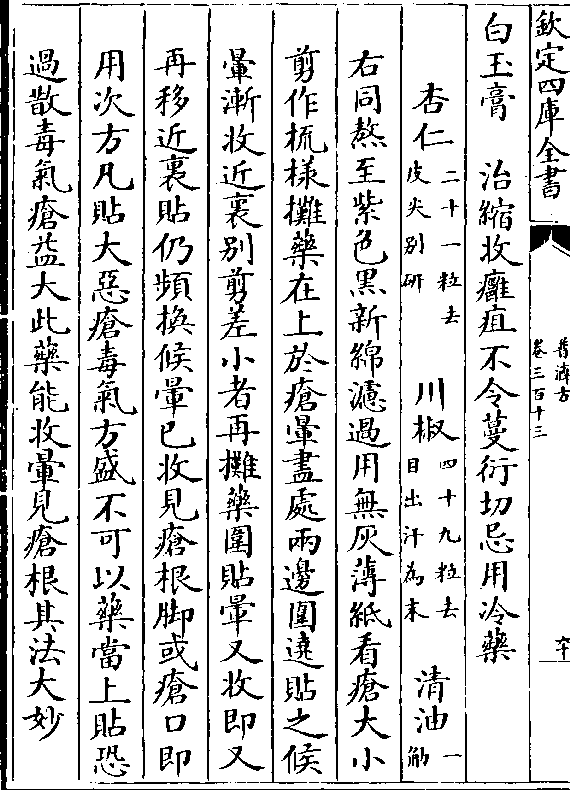 欽定四庫全書
普濟方
卷三百十三
六十一
白玉膏　治縮收癰疽不令蔓衍切忌用冷藥
杏仁二十一粒去皮尖別研　川椒四十九粒去目出汗為末　清油一觔
右同熬至紫色黑新綿濾過用無灰薄紙看瘡大小
剪作梳樣攤藥在上於瘡暈盡處兩邊圍遶貼之候
暈漸收近裏别剪差小者再攤藥圍貼暈又收即又
再移近裏貼仍頻換候暈已收見瘡根脚或瘡口即
用次方凡貼大惡瘡毒氣方盛不可以藥當上貼恐
過散毒氣瘡益大此藥能收暈見瘡根其法大妙